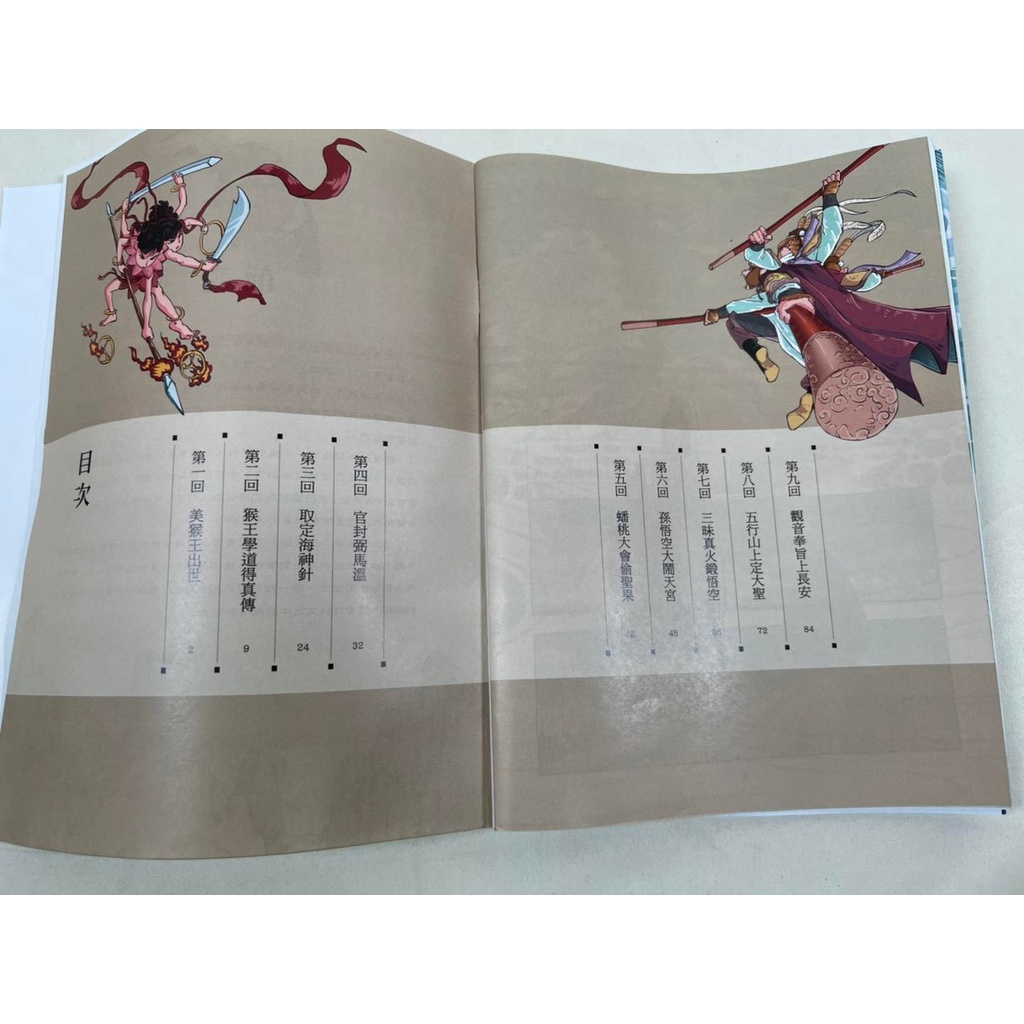 目次
第一回 美猴王出世 2
第二回 猴王學道得真傳 9
第三回 取定海神針 24
第四回 官封弼馬溫 32
第五回 蟠桃大會偷聖果 42
第六回 孫悟空大鬧天宮 48
第七回 三昧真火鍛悟空
第八回 五行山上定大聖 72
第九回 觀音奉旨上長安 84